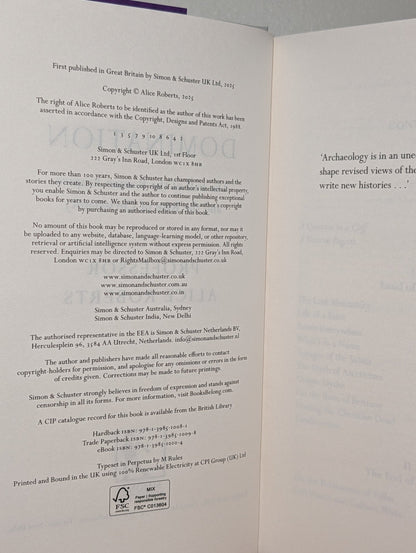 First published in Great Britain by Simon & Schuster UK Ltd, 2025
Copyright © Alice Roberts, 2025
The right of Alice Roberts to be identified as the author of this work has been
asserted in accordance with the Copyright, Designs and Patents Act, 1988.
1 3 5 7 9 10 8 6 4 2
Simon & Schuster UK Ltd, 1st Floor
222 Gray's Inn Road, London WC1X 8HB
For more than 100 years, Simon & Schuster has championed authors and the
stories they create. By respecting the copyright of an author's intellectual property,
you enable Simon & Schuster and the author to continue publishing exceptional
books for years to come. We thank you for supporting the author's copyright
by purchasing an authorised edition of this book.
No amount of this book may be reproduced or stored in any format, nor may it
be uploaded to any website, database, language-learning model, or other repository,
retrieval or artificial intelligence system without express permission. All rights
reserved. Enquiries may be directed to Simon & Schuster, 222 Gray's Inn Road,
London WC1X 8HB or RightsMailbox@simonandschuster.co.uk
www.simonandschuster.co.uk
www.simonandschuster.com.au
www.simonandschuster.co.in
Simon & Schuster Australia, Sydney
Simon & Schuster India, New Delhi
The authorised representative in the EEA is Simon & Schuster Netherlands BV,
Herculesplein 96, 3584 AA Utrecht, Netherlands. info@simonandschuster.nl
The author and publishers have made all reasonable efforts to contact
copyright-holders for permission, and apologise for any omissions or errors in the form
of credits given. Corrections may be made to future printings.
Simon & Schuster strongly believes in freedom of expression and stands against
censorship in all its forms. For more information, visit BooksBelong.com.
A CIP catalogue record for this book is available from the British Library
Hardback ISBN: 978-1-3985-1008-1
Trade Paperback ISBN: 978-1-3985-1009-8
eBook ISBN: 978-1-3985-1010-4
Typeset in Perpetua by M Rules
Printed and Bound in the UK using 100% Renewable Electricity at CPI Group (UK) Ltd
FSC
www.fsc.org
MIX
Paper | Supporting
responsible forestry
FSC® C013604
'Archaeology is in an une
shape revised views of the
write new histories . . .'